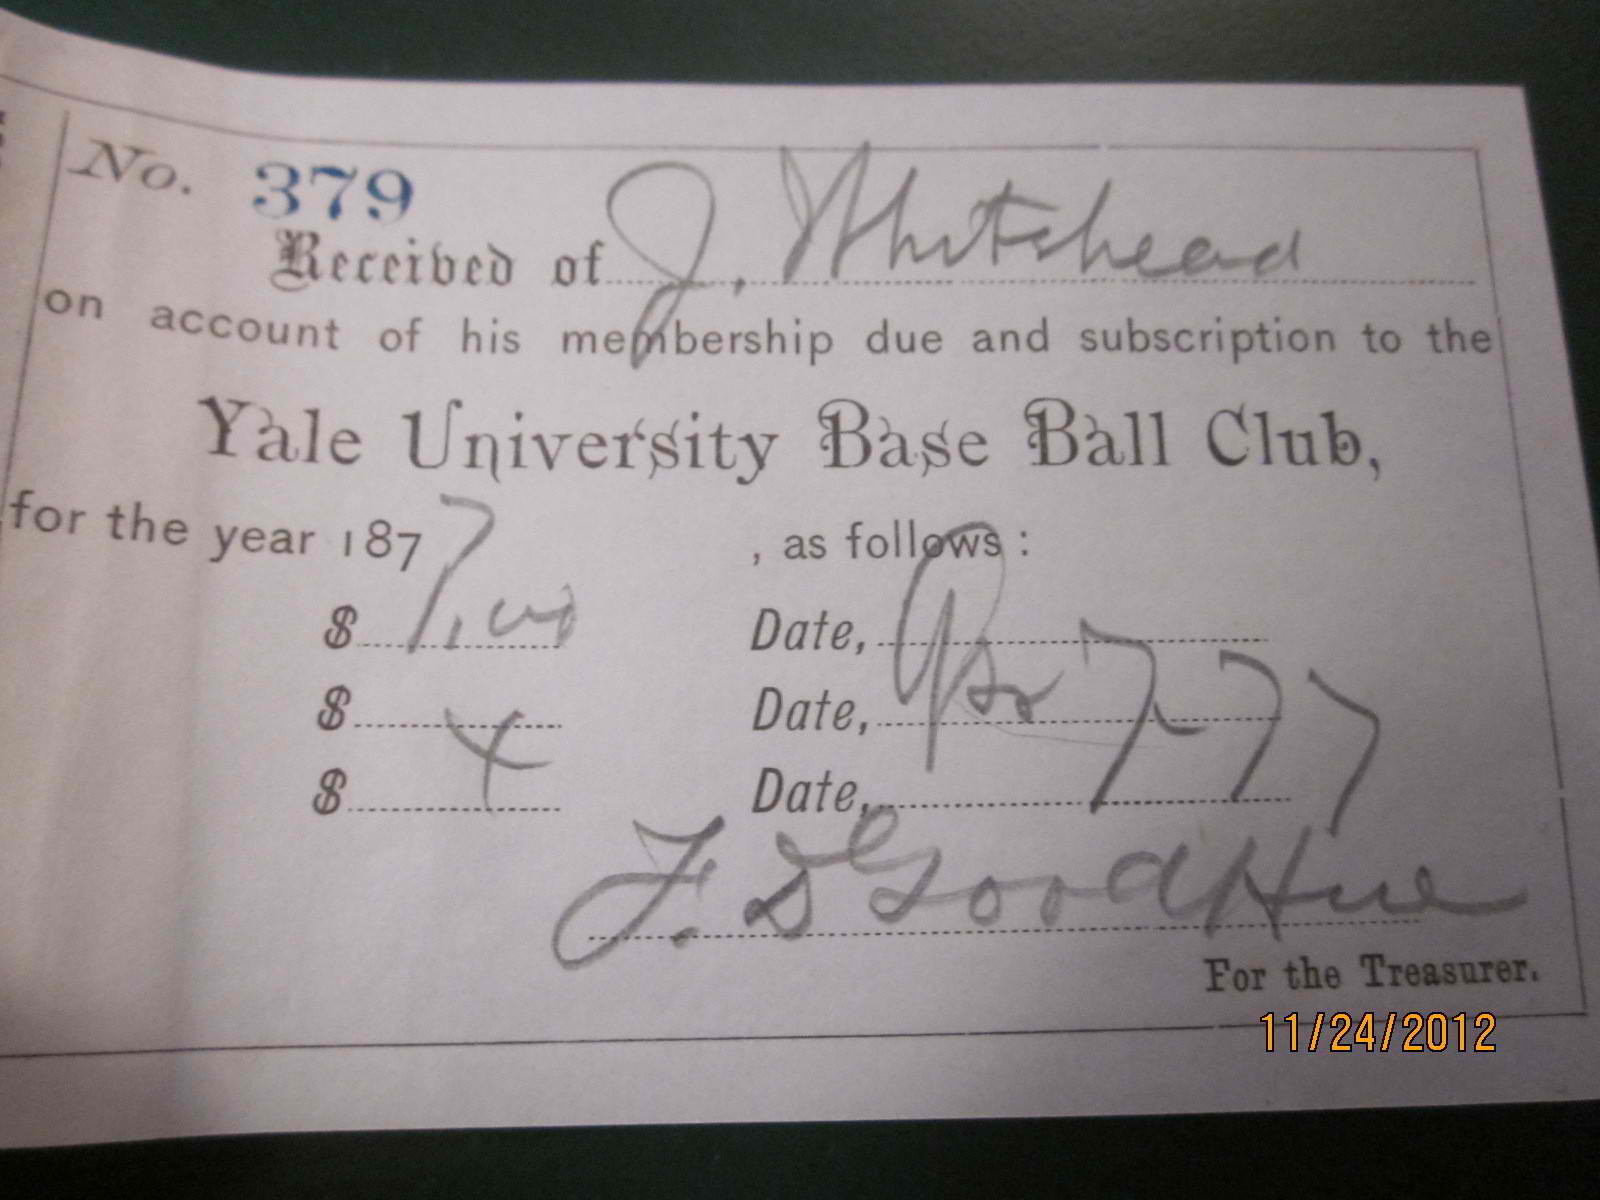 No. 379
Received of J. Whitehead
on account of his membership due and subscription to the
Yale University Base Ball Club,
for the year 1877, as follows:
$ 1,00 Date,
$ Date, Apr 7-77
$ Date,
F. D Goodhue
For the Treasurer.
11/24/2012